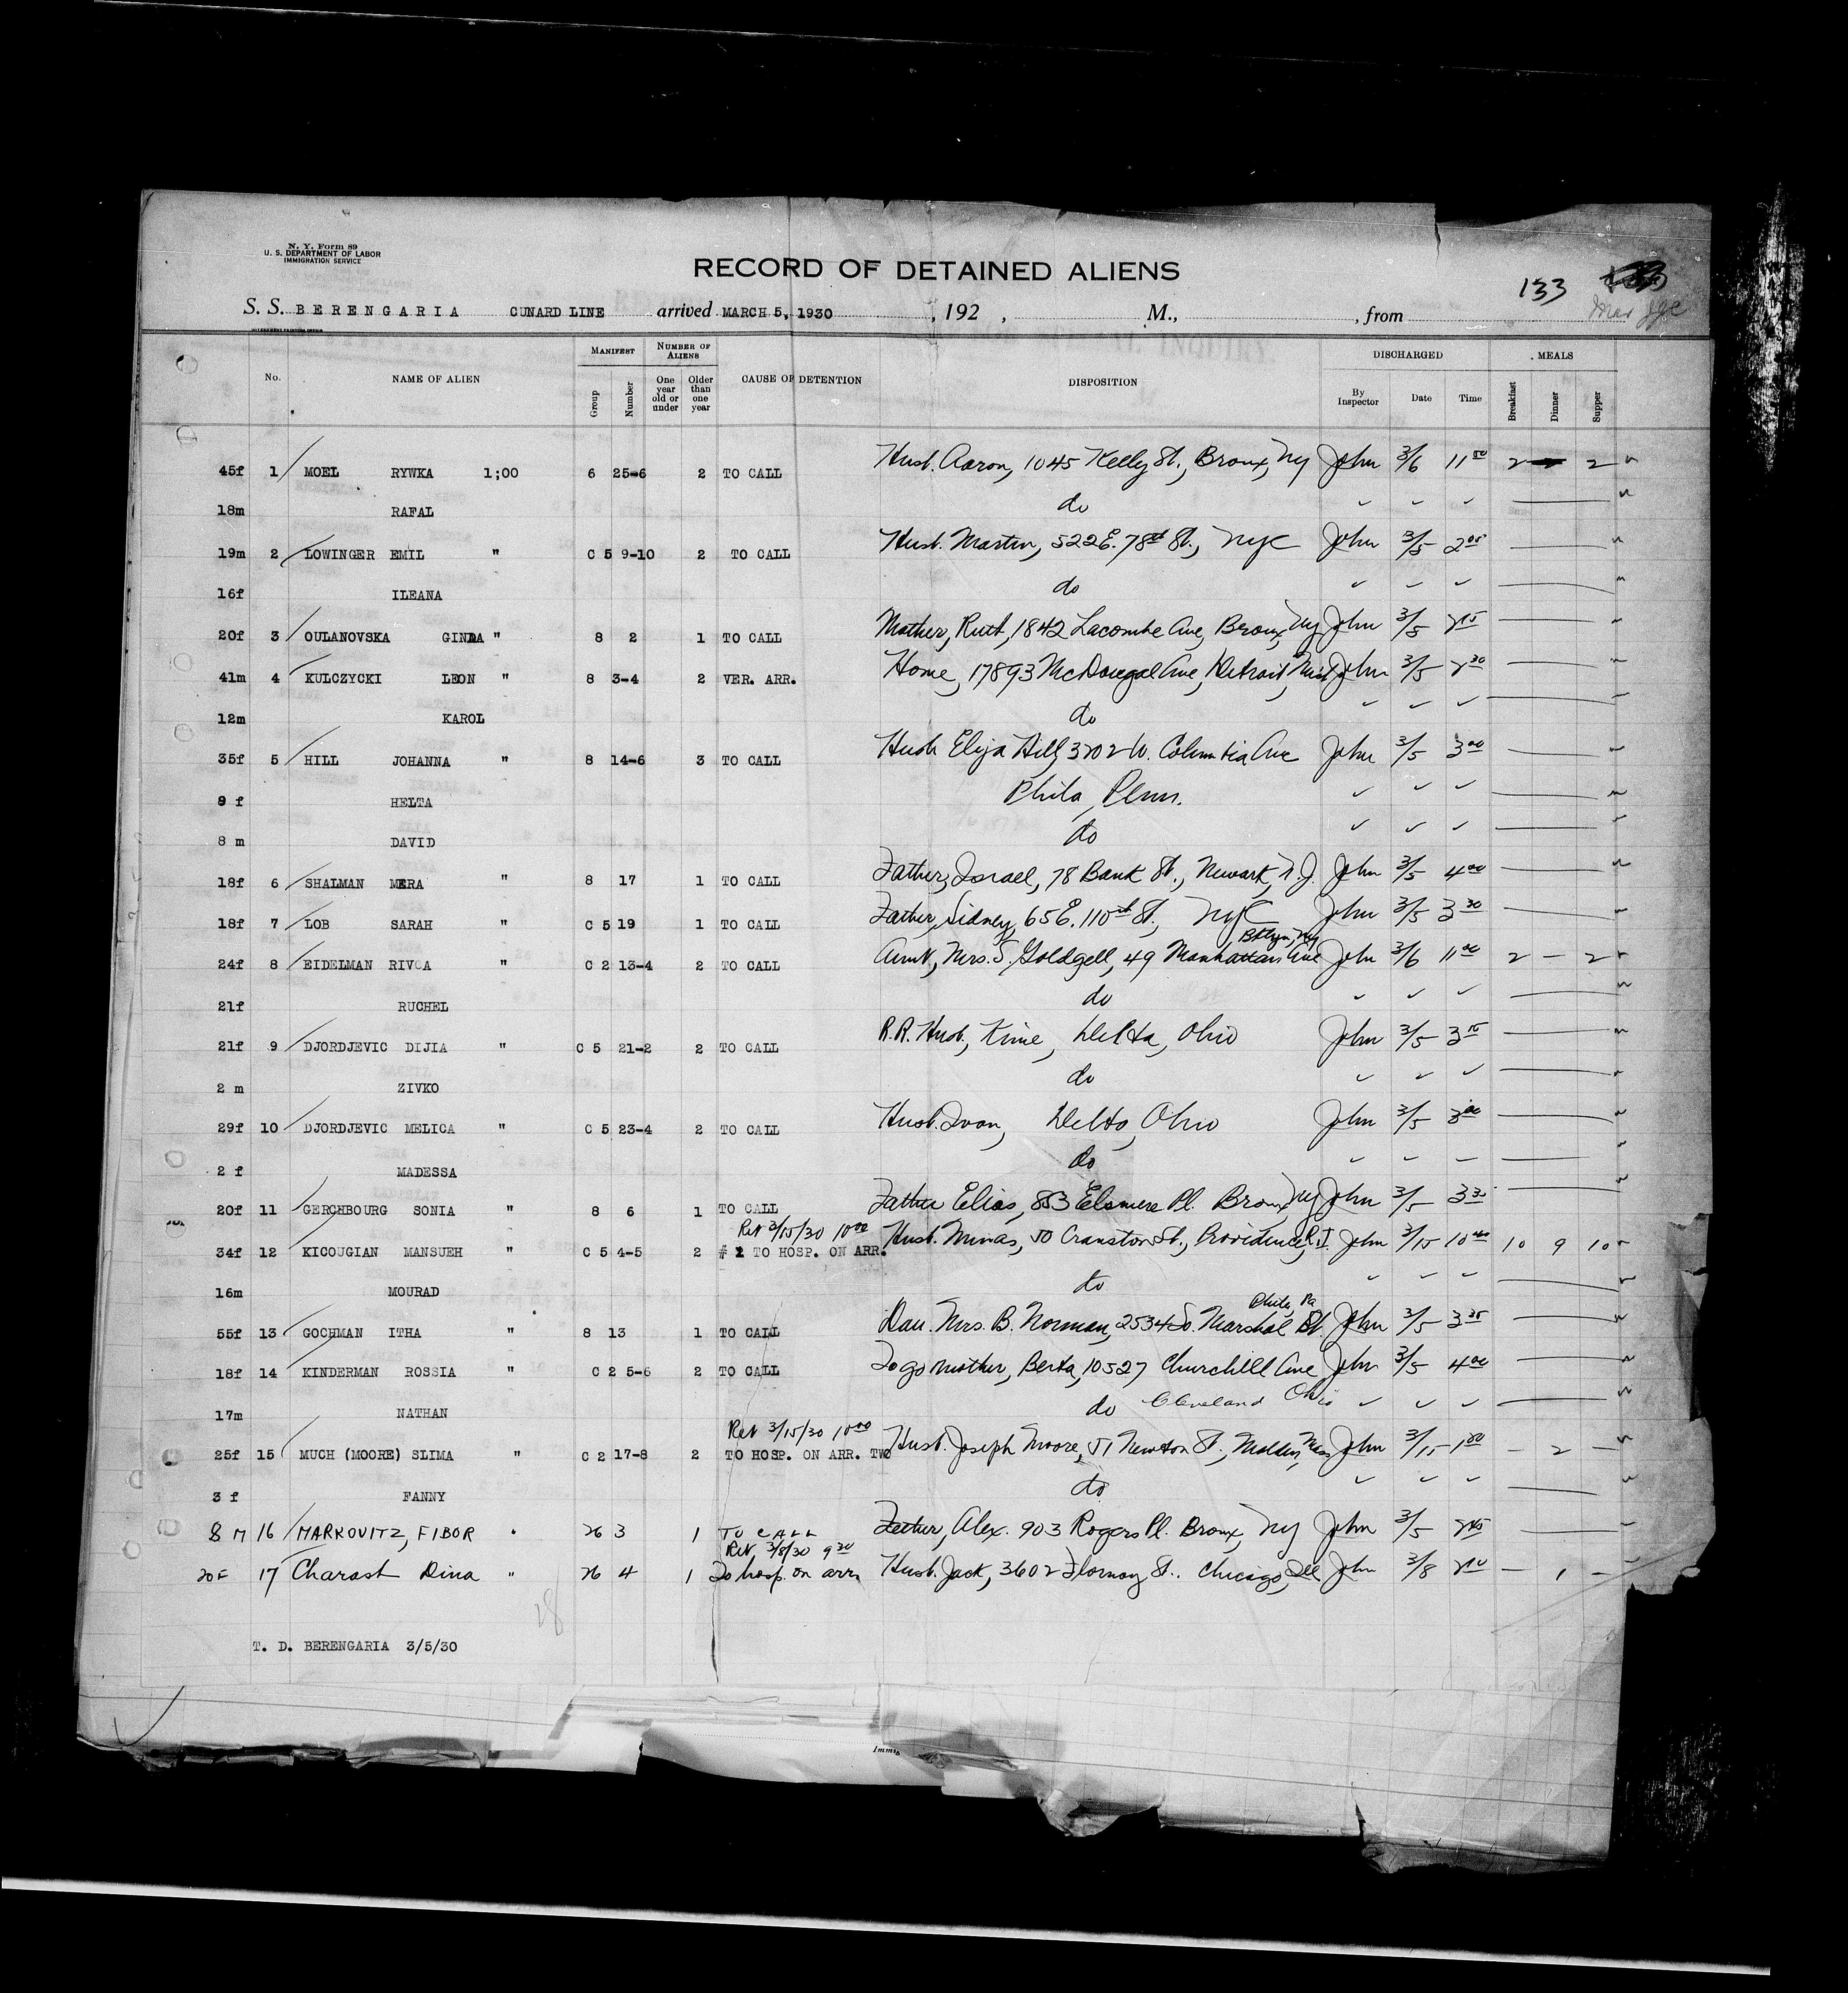 N. Y. Form 89
U. S. DEPARTMENT OF LABOR
IMMIGRATION SERVICE
RECORD OF DETAINED ALIENS
133
S. S. BERENGARIA CUNARD LINE arrived MARCH 5, 1930 , 192 , M., , from
MANIFEST NUMBER OF ALIENS DISCHARGED MEALS
No. NAME OF ALIEN Group Number One year old or under Older than one year CAUSE OF DETENTION DISPOSITION By Inspector Date Time Breakfast Dinner Supper
45f 1 MOEL RYWKA 1;00 6 25-6 2 TO CALL Husb. Aaron, 1045 Kelly St., Bronx, NY John 3/6 11 00 2 — 2
18m RAFAL do ✓ ✓ ✓
19m 2 LOWINGER EMIL " C 5 9-10 2 TO CALL Husb. Martin, 522 E. 78th St., NYC John 3/5 2 05
16f ILEANA do ✓ ✓ ✓
20f 3 OULANOVSKA GINDA " 8 2 1 TO CALL Mother, Ruth, 1842 Lacombe Ave, Bronx, Ny John 3/5
41m 4 KULCZYCKI LEON " 8 3-4 2 VER. ARR. Home, 17893 McDougal Ave, Detroit, Mich John 3/5 2 30
12m KAROL do ✓ ✓ ✓
35f 5 HILL JOHANNA " 8 14-6 3 TO CALL Husb Elija Hill, 3702 W. Columbia Ave John 3/5 3 00
9 f HELTA Phila, Penn. ✓ ✓ ✓
8 m DAVID do ✓ ✓ ✓
18f 6 SHALMAN MERA " 8 17 1 TO CALL Father, Israel, 78 Bank St., Newark, N.J. John 3/5 4 00
18f 7 LOB SARAH " C 5 19 1 TO CALL Father, Sidney, 65 E. 110th St., NYC John 3/5 3 30
Bklyn, Ny
24f 8 EIDELMAN RIVCA " C 2 13-4 2 TO CALL Aunt, Mrs. S. Goldgell, 49 Manhattan Ave John 3/6 11 00 2 — 2
21f RUCHEL do ✓ ✓ ✓
21f 9 DJORDJEVIC DIJIA " C 5 21-2 2 TO CALL R.R. Husb., Kime, Delta, Ohio John 3/5 3 15
2 m ZIVKO do ✓ ✓ ✓
29f 10 DJORDJEVIC MELICA " C 5 23-4 2 TO CALL Husb. Ivan, Delta, Ohio John 3/5 3 00
2 f MADESSA do ✓ ✓ ✓
20f 11 GERCHBOURG SONIA " 8 6 1 TO CALL Father Elias, 853 Elsmere Pl. Bronx Ny John 3/5 3 30
Ret 3/15/30 10 00
34f 12 KICOUGIAN MANSUEH " C 5 4-5 2 # 1 TO HOSP. ON ARR. Husb. Minas, 50 Cranston St., Providence, R.I. John 3/15 10 40 10 9 10
16m MOURAD do ✓ ✓ ✓
Phila, Pa
55f 13 GOCHMAN ITHA " 8 13 1 TO CALL Dau. Mrs. B. Norman, 2534 So. Marshal St. John 3/5 3 35
18f 14 KINDERMAN ROSSIA " C 2 5-6 2 TO CALL To go mother, Berta, 10527 Churchill Ave John 3/5 4 00
17m NATHAN do Cleveland Ohio ✓ ✓ ✓
Ret 3/15/30 10 00
25f 15 MUCH (MOORE) SLIMA " C 2 17-8 2 TO HOSP. ON ARR. TWO Husb. Joseph Moore, 51 Newton St., Malden, Mass John 3/15 1 00 — 2 —
3 f FANNY do ✓ ✓ ✓
8 M 16 MARKOVITZ, FIBOR " 26 3 1 TO CALL Father, Alex. 903 Rogers Pl. Bronx, Ny John 3/5 2 45
Ret 3/8/30 9 30
20F 17 Charash Dina " 26 4 1 To hosp. on arr. Husb. Jack, 3602 Flornoy St. Chicago, Ill John 3/8 2 10 — 1 —
28
T. D. BERENGARIA 3/5/30